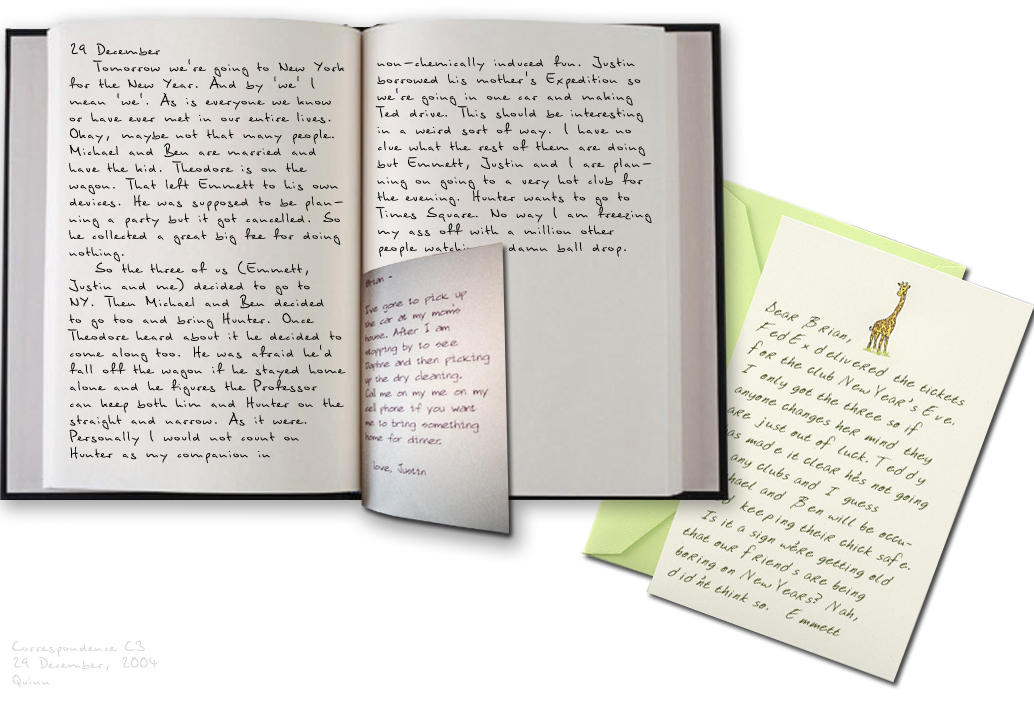 29 December
Tomorrow we're going to New York
for the New Year. And by 'we' I
mean 'we'. As is everyone we know
or have ever met in our entire lives.
Okay, maybe not that many people.
Michael and Ben are married and
have the kid. Theodore is on the
wagon. That left Emmett to his own
devices. He was supposed to be plan-
ning a party but it got cancelled. So
he collected a great big fee for doing
nothing.
So the three of us (Emmett,
Justin and me) decided to go to
NY. Then Michael and Ben decided
to go too and bring Hunter. Once
Theodore heard about it he decided to
come along too. He was afraid he'd
fall off the wagon if he stayed home
alone and he figures the Professor
can keep both him and Hunter on the
straight and narrow. As it were.
Personally I would not count on
Hunter as my companion in
non-chemically induced fun. Justin
borrowed his mother's Expedition so
we're going in one car and making
Ted drive. This should be interesting
in a weird sort of way. I have no
clue what the rest of them are doing
but Emmett, Justin and I are plan-
ning on going to a very hot club for
the evening. Hunter wants to go to
Times Square. No way I am freezing
my ass off with a million other
people damn ball drop.
Brian -
I've gone to pick up
the car at my mom's
house. After I am
stopping by to see
Daphne and then picking
up the dry cleaning.
Call me on my me on my
cell phone if you want
me to bring something
home for dinner.
love, Justin
Dear Brian,
FedEx delivered the tickets
for the club New Year's Eve.
I only got the three so if
anyone changes her mind they
are just out of luck. Teddy
has made it clear he's not going
any clubs and I guess
and Ben will be occu-
keeping their chick safe.
Is it a sign we're getting old
that our friends are being
boring on New Years? Nah,
didn't think so. Emmett
Correspondence C3
29 December, 2004
Quinn